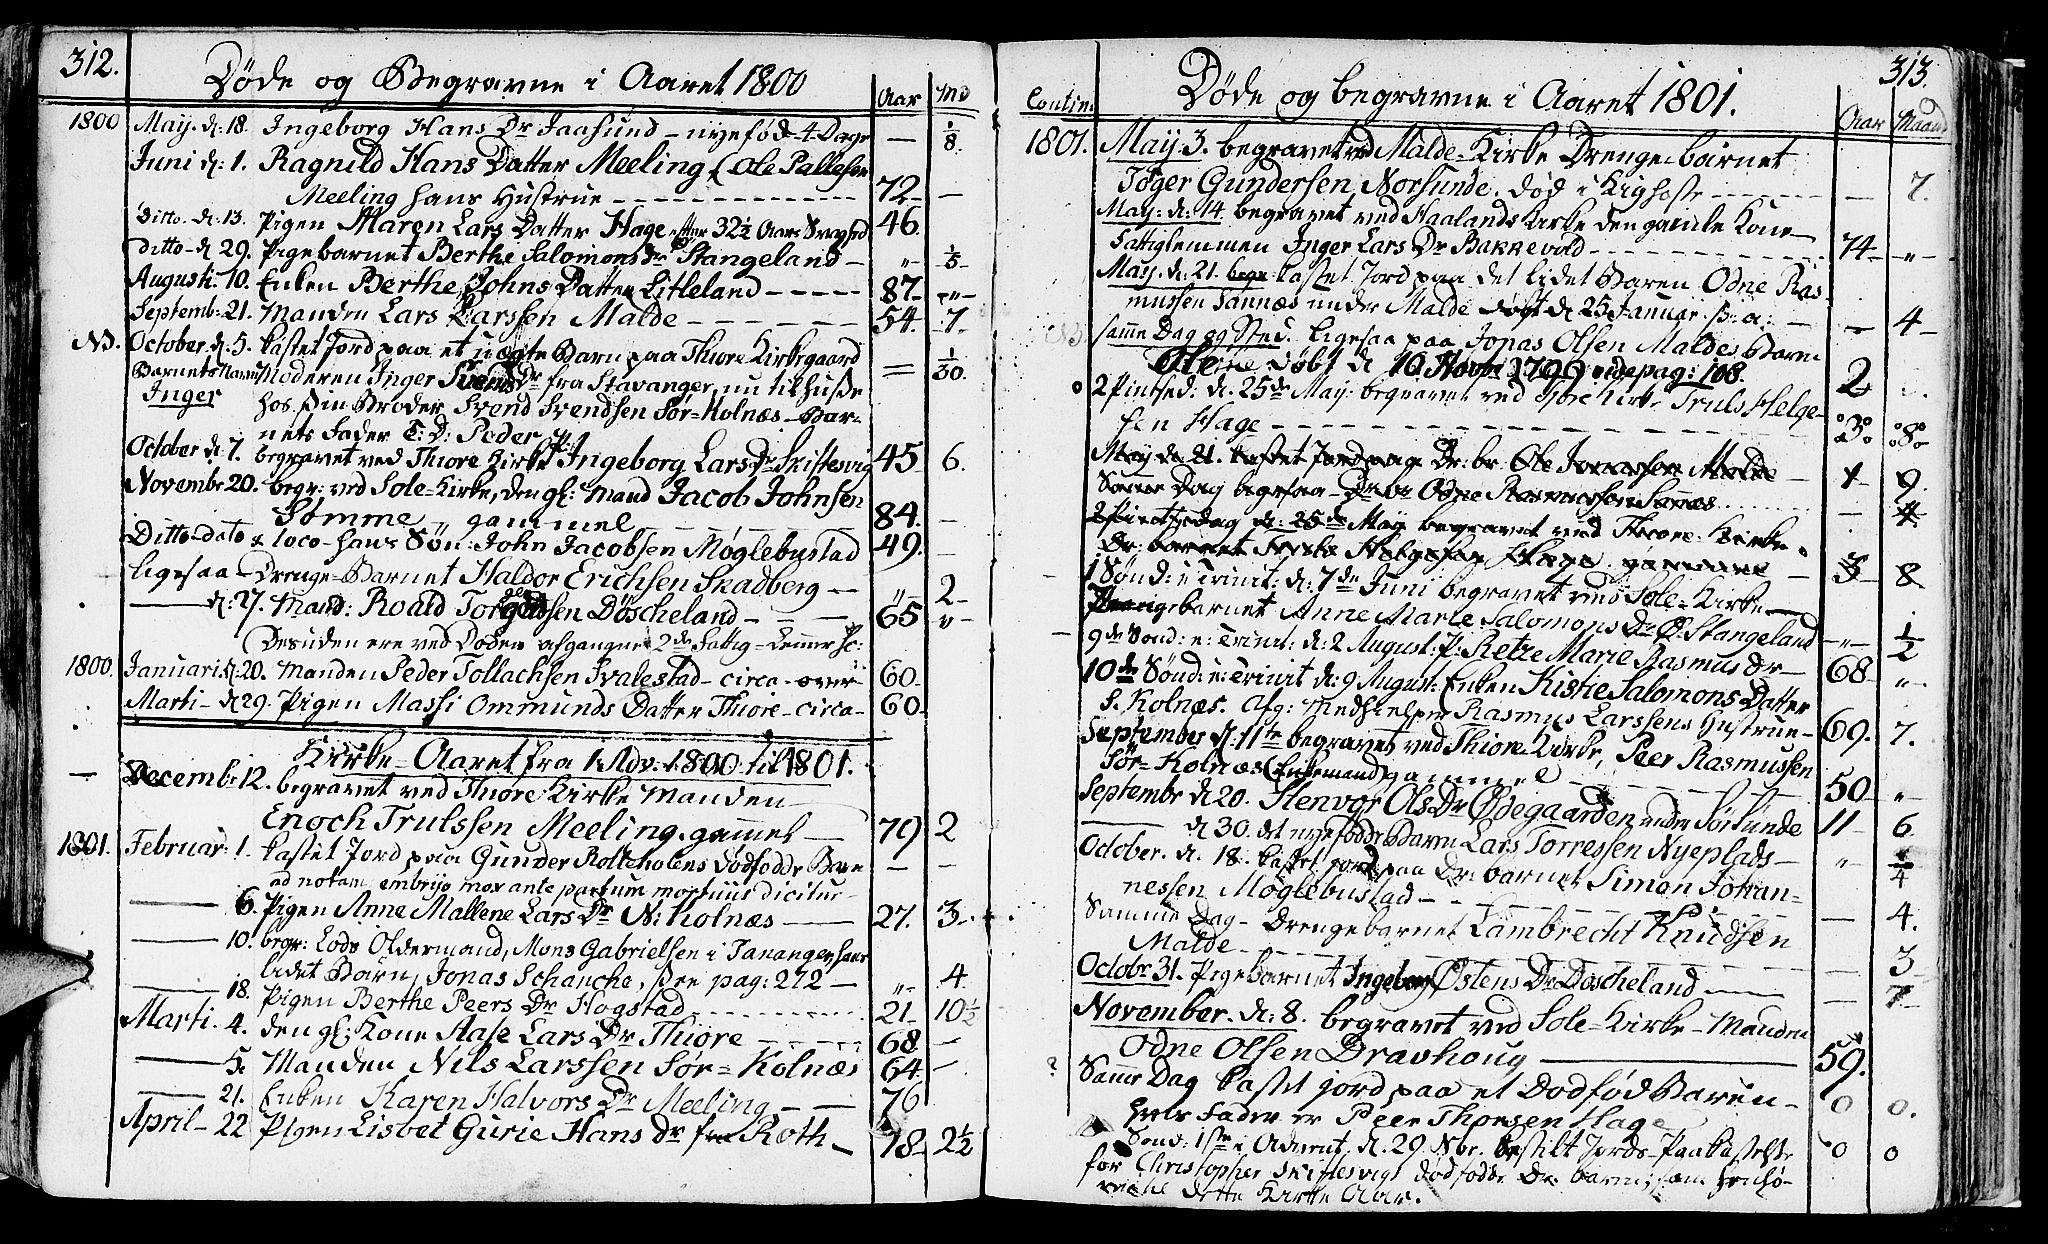 312.
Døde og Begravne i Aaret 1800
Aar Md
1800 May. d: 18. Ingeborg Hans Dr Jaasund - nyefød 4 Dage — 1/8.
Juni d: 1. Ragnild Hans Datter Meeling (Ole Pallesen
Meeling hans Hustrue 72 —
Ditto. d: 13. Pigen Maren Lars Datter Hage efter 32½ Aars Svaghed 46
Ditto d 29. Pigebarnet Berthe Salomons Dr Stangeland „ 1/5
Augusti. 10. Enken Berthe Johns Datter Litleland 87 „
Septemb: 21. Manden Lars Larssen Malde 54. 7
NB. October. d. 5. kastet Jord paa et uægte Barn paa Thiore Kirkegaard
Barnets Navn Moderen Inger Svends Dr fra Stavanger, nu til husße = 1/30.
Inger hos sin Broder Svend Svendsen Sør-Kolnæs Bar-
nets Fader T: D: Peder
October d. 7. begravet ved Thiore Kirke Ingeborg Lars Dr Skiftesvig 45 6.
Novembr 20. begr: ved Sole-Kirke, den gl: Mand Jacob Johnsen
Sømme gammel 84. —
Ditto-dato & loco-hans Søn: John Jacobsen Møglebustad 49. —
ligesaa - Drenge-Barnet Haldor Erichsen Skadberg „ 2
— d: 27. Mand: Roald Døscheland 65 „
Desuden ere ved Døden afgangne 2de Fattig-Lemmer
1800. Januari. d: 20. Manden Peder Tollachsen Ivalestad - circa - over 60.
Marti - d 29. Pigen Massi Ommunds Datter Thiore - circa 60.
Kirke-Aaret fra 1. Adv. 1800 til 1801.
Decembr 12. begravet ved Thiore Kirke Manden
Enoch Trulssen Meeling. gammel 79 2
1801. Februar: 1. kastet Jord paa Gunder dødfødde Barn — —
ad notam, embryo mox ante partum mortuus dicitur
— 6. Pigen Anne Mallene Lars Dr N: Kolnæs 27. 3
— 10. begr: Lods Oldermand, Mons Gabrielsen i Tananger, hans
lidet Barn, Jonas Schanche, see pag: 272 „ 4
— 18. Pigen Berthe Peers Dr Hogstad 21 10½
Marti. 4. den gl: Kone Aase Lars Dr Thiore 68 —
— 5. Manden Nils Larssen Sør-Kolnæs 64 —
— 21. Enken Karen Halvors Dr Meeling 76
April - 22 Pigen Lisbet Gurie Hans Dr fra Roth 78 2½
313.
Contin.
Døde og begravne i Aaret 1801.
Aar Maaned
1801. May 3. begravet ved Malde-Kirke Drengebarnet
Tøger Gundersen Norsunde. død i Kighoste — 7.
May: d: 14. begravet ved Haalands Kirke den gamle Kone
Fattiglemmen Inger Lars Dr Bakkevold 74 „
May. d: 21. kastet Jord paa det lidet Baren Odne Ras-
mussen Sannæs under Malde døbt d 25 Januar. — 4
NB. samme Dag og Sted. ligesaa paa Jonas Olsen Maldes Barn
Ole døbt d 10 Novbr 1799 vide pag: 108. 2
2 Pintsed. d. 25de May. begravet ved Thiore Kirke Truls Helge-
sen Hage 3. 8.
May d: 21. kastet Jord paa Dr: br: Ole Jonassen Malde 1 9
Samme Dag ligesaa Odne Rasmussen Sanæs — 4
2 Pintsedag d: 25de May begravet ved Thiore Kirke
Dr: barnet Truls Helgesen Hage gammel 3 8
1 Sønd: e: Trinit: d: 7de Juni begravet ved Sole-Kirke
Pigebarnet Anne Marie Salomons Dr Ø. Stangeland „ 1/2
9de Sønd: e: Trinit: d: 2 August: P: Retze Marie Rasmus Dr 68 „
10de Sønd: e: Trinit d: 9 August: Enken Kistie Salomons Datter
S. Kolnæs. Afg: Medhielper Rasmus Larssens Hustrue 69. 7.
September d: 11te begravet ved Thiore Kirke, Peer Rasmussen
Sør-Kolnæs (Enkemand) gammel 50 „
Septembr d 20. Stenvor Ols Dr Ødegaarden under Sørsunde 11 6
— d 30. det nyefødde Barn Lars Torressen Nyeplads „ 1/4
October. d. 18. kastet jord paa Dr: barnet Simon Johan-
nessen Møglebustad — 4.
Samme Dag - Drengebarnet Lambrecht Knudsen
Malde — 3
Octobr 31. Pigebarnet Ingeborg Østens Dr Døscheland — 7
November. d: 8. begravet ved Sole-Kirke - Manden
Odne Olsen Dravhoug 59.
Samme Dag kastet jord paa et Dødfød Baren
hvis Fader er Peer Thorsen Hage 0 0.
Sønd: 1ste i Advent. d. 29. Nbr. bestilt Jords-Paakastelse
for Christopher Skiftesvigs dødfødde Dr: barn, som henhø- 0 0
til dette Kirke Aar.